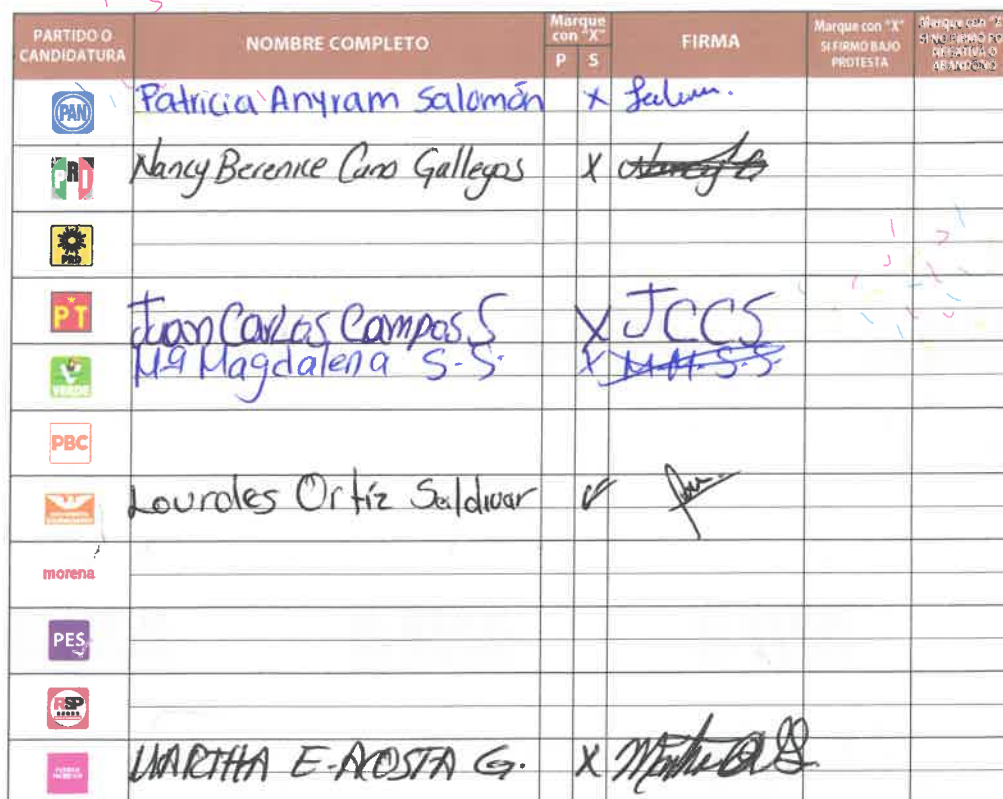 PARTIDO O CANDIDATURA
NOMBRE COMPLETO
Marque con "X"
P S
FIRMA
Marque con "X" SI FIRMO BAJO PROTESTA
Marque con "X" SI NO FIRMO POR NEGATIVA O ABANDONO
PAN Patricia Anyram Salomón X
PRI Nancy Berenice Cano Gallegos X
PRD
PT Juan Carlos Campos S X JCCS
VERDE Ma Magdalena S-S- X M-M-S-S-
PBC
Lourdes Ortíz Saldivar
morena
PES
RSP
MARTHA E-ACOSTA G. X